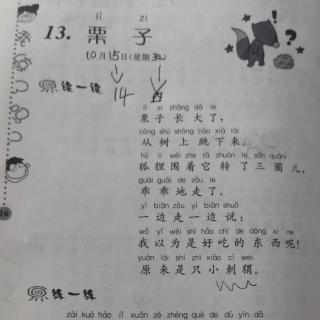 lì zi
13. 栗子
10月15日(星期五)
读一读
14
lì zi zhǎng dà le
栗子长大了，
cóng shù shàng tiào xià lái
从树上跳下来。
hú li wéi zhe tā zhuàn le sān quānr
狐狸围着它转了三圈儿，
guāi guāi de zǒu le
乖乖地走了。
yì biān zǒu yì biān shuō
一边走一边说：
wǒ yǐ wéi shì hǎo chī de dōng xi ne
我以为是好吃的东西呢！
yuán lái shì zhī xiǎo cì wei
原来是只小刺猬。
16
练一练
zài kuò hào lǐ xuǎn zé zhèng què de dú yīn dǎ